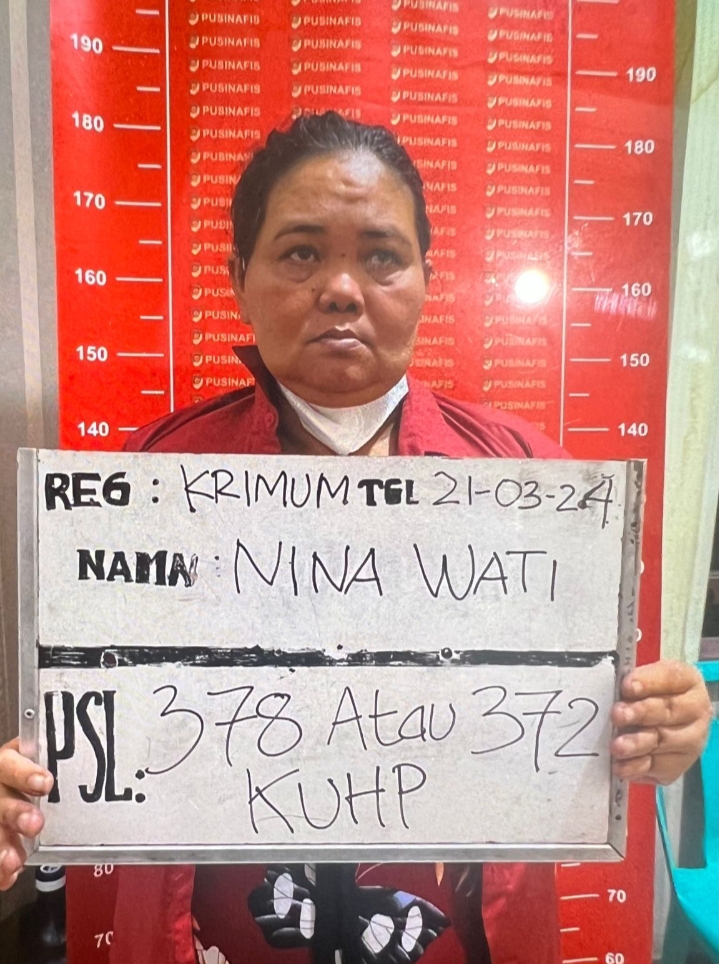 REG : KRIMUM TGL 21-03-24
NAMA : NINA WATI
PSL: 378 Atau 372
KUHP
190
180
170
160
150
140
80
70
190
180
170
160
150
140
70
60
PUSINAFIS